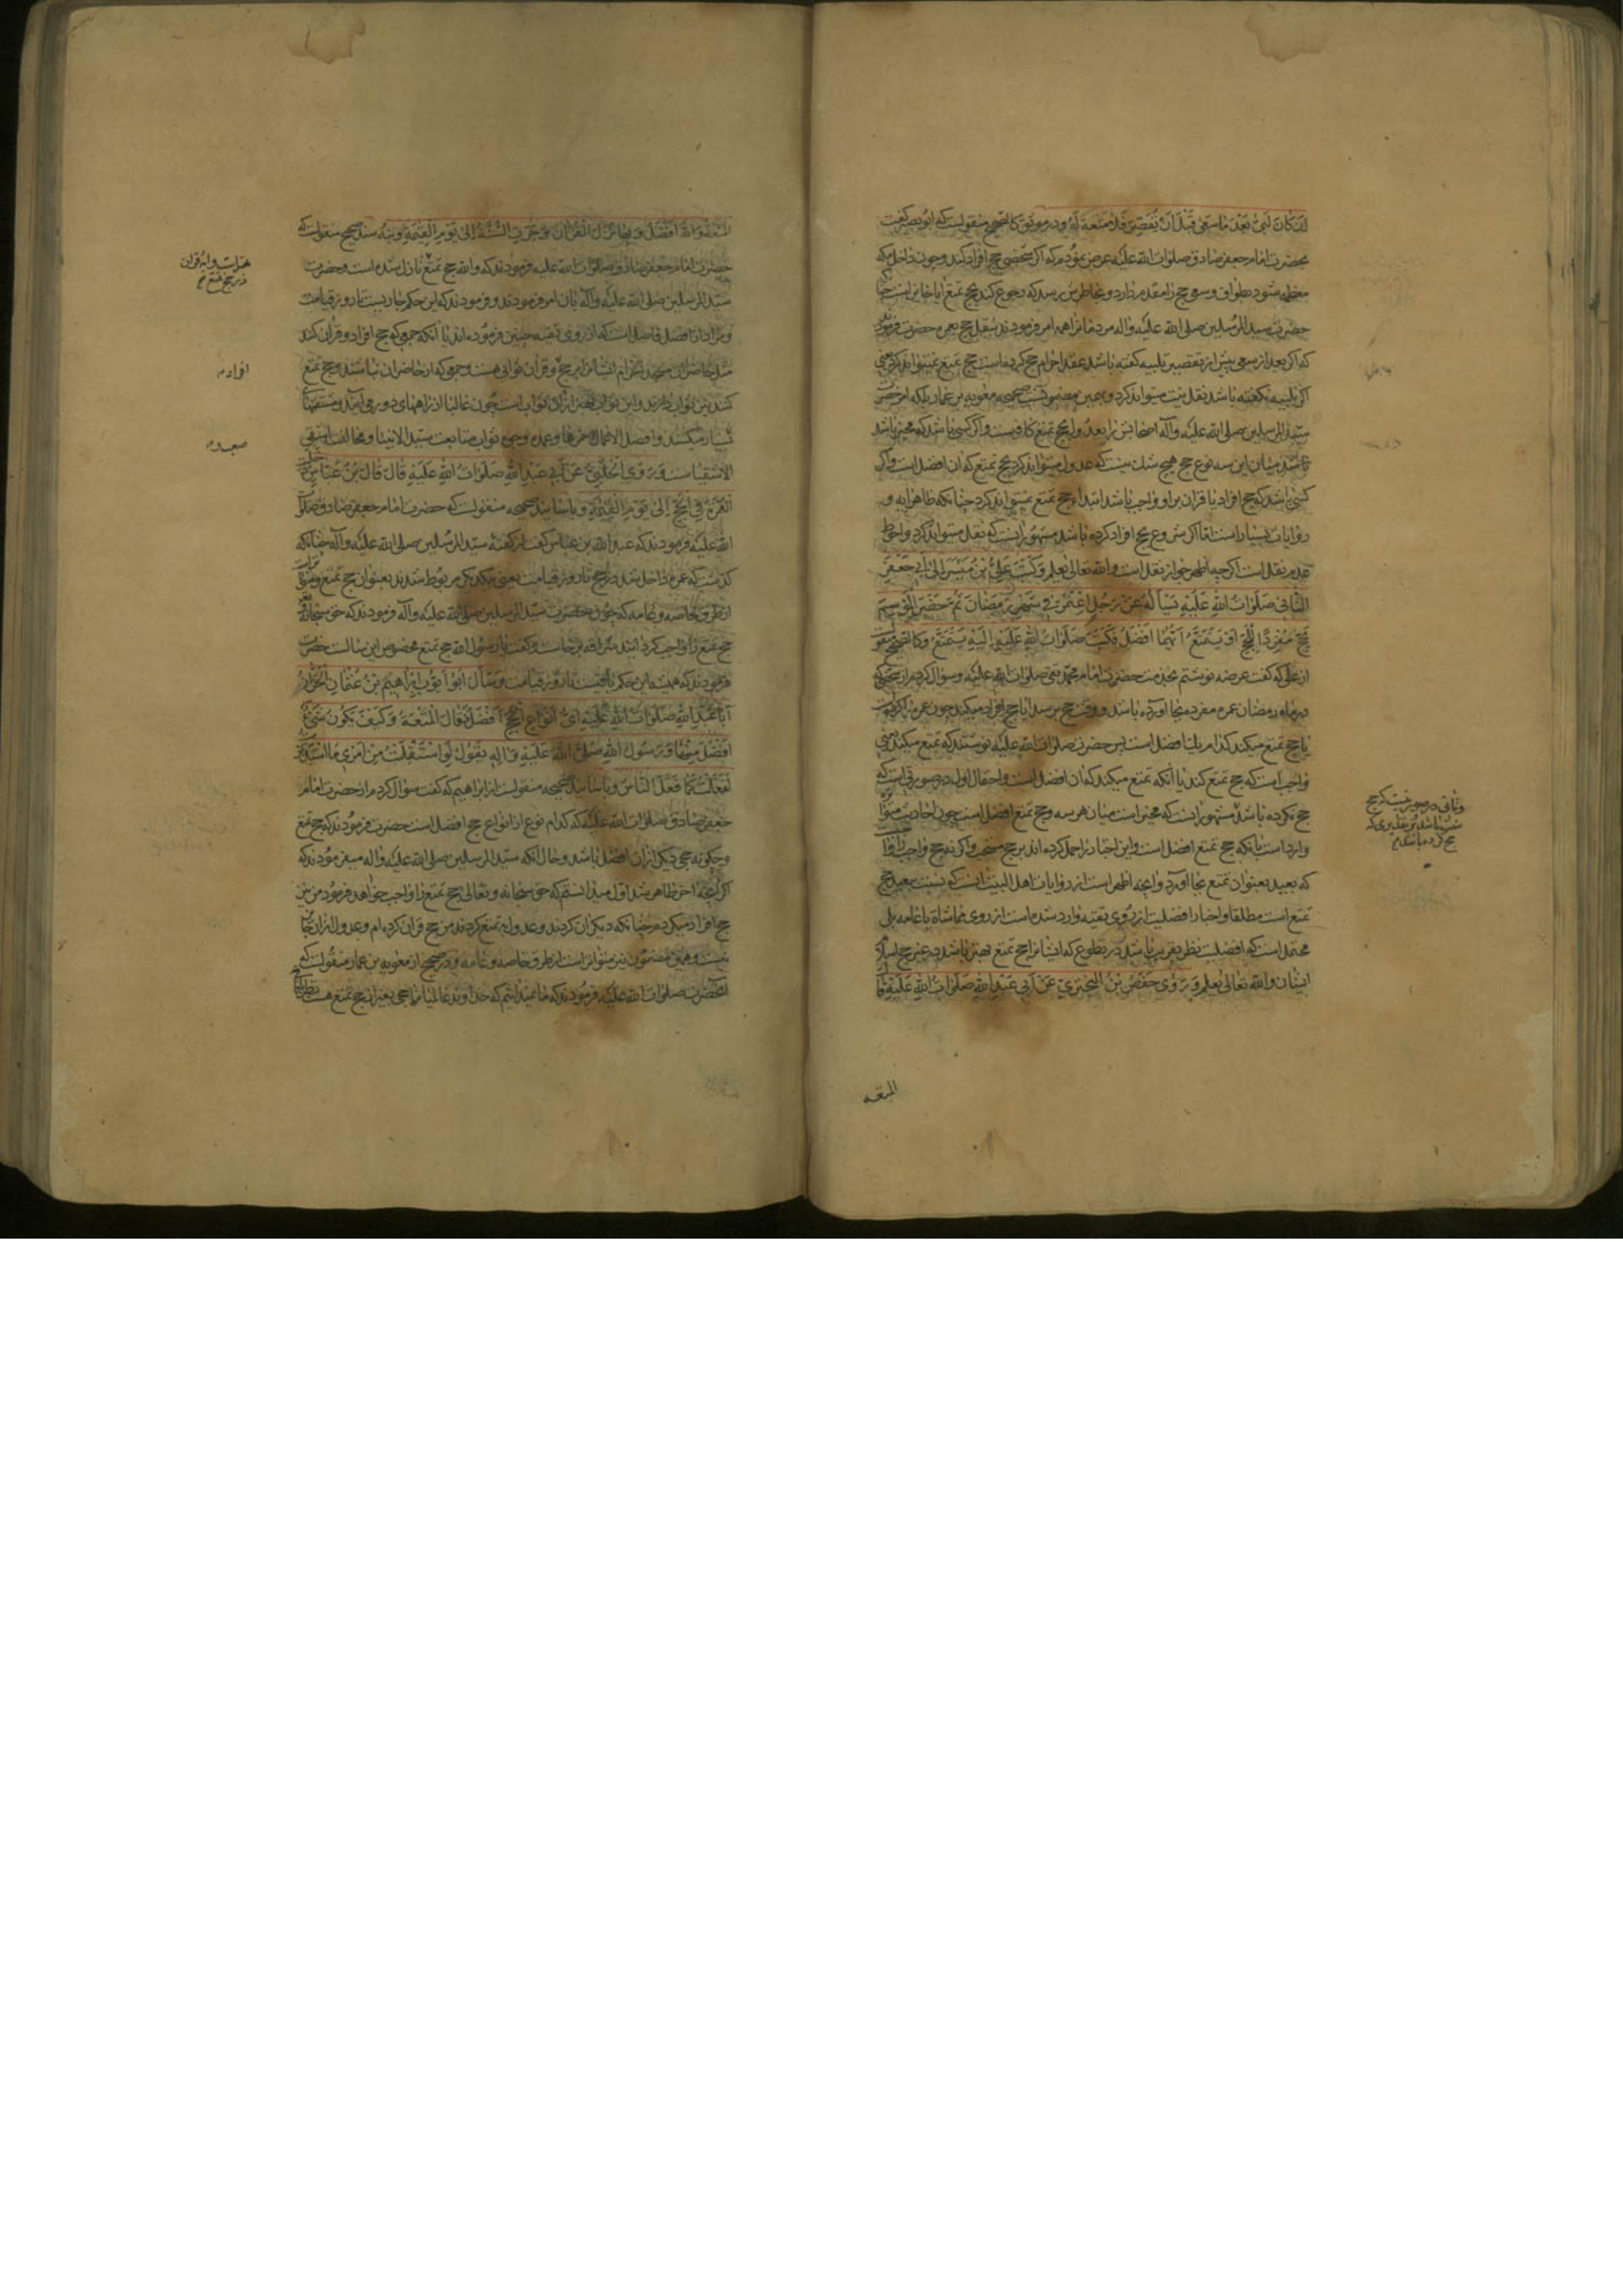 ان كان لبى بعد ما سعى قبل ان يقصر فلا متعة له و در موثق كالصحيح منقولست كه ابو بصير گفت
بحضرت امام جعفر صادق صلوات الله عليه عرض نمودم كه اگر شخصى حج افراد كند و چون داخل مكه
معظمه شود بطواف و سعى حج را مقدم دارد و بخاطرش رسد كه رجوع كند بحج تمتع ايا جايز است
حضرت سيد المرسلين صلى الله عليه واله مردمانرا همه امر فرمودند بنقل حج بعمره حضرت فرمودند
كه اگر بعد از سعى پيش از تقصير تلبيه گفته باشد عقد احرام حج كرده است حج تمتع نميتواند كرد
اگر تلبيه نگفته باشد نقل نيت ميتواند كرد و بهمين مضمونست صحيحه معوية بن عمار بلكه امر حضرت
سيد المرسلين صلى الله عليه وآله اصحابش را بعدول بحج تمتع كافيست و اگر كسى باشد كه مخير باشد
باشد ميان اين سه نوع حج هيچ شك نيست كه عدول ميتواند كرد بحج تمتع كه ان افضل است و اگر
كسى باشد كه حج افراد يا قران براو واجب باشد ابتداء حج تمتع نميتواند كرد چنانكه ظاهر ايه و
روايات بسيار است اما اگر شروع بحج افراد كرده باشد مشهور انست كه نقل ميتواند كرد و احوط
عدم نقل است اگر چه اظهر جواز نقل است والله تعالى يعلم وكتب على بن ميسر الى ابي جعفر
الثانى صلوات الله عليه يسأله عن رجل اعتمر في شهر رمضان ثم حضر الموسم
يحج مفردا للحج او يتمتع ايهما افضل فكتب صلوات الله عليه اليه يتمتع وكالصحيح منقو
از على كه گفت عرضه نوشتم بخدمت حضرت امام محمد تقى صلوات الله عليه و سؤال كردم از شخصى كه
در ماه رمضان عمره مفرده بجا آورده باشد و وقت حج برسد ايا حج افراد ميكند چون عمره را كرده است
يا حج تمتع ميكند كدام يك افضل است پس حضرت صلوات الله عليه نوشتند كه تمتع ميكند يعنى
واجب است كه حج تمتع كند يا آنكه تمتع ميكند كه ان افضل است و احتمال اول در صورتى است كه
حج نكرده باشد مشهور انست كه مخير است ميان هر سه و حج تمتع افضل است چون احاديث متواتره
وارد است بانكه حج تمتع افضل است و اين اخبار را حمل كرده اند بر حج سنت و اگر نه حج واجب را
كه بعيد بعنوان تمتع بجا آورد و انچه اظهر است از روايات اهل البيت انست كه نسبت ببعيد حج
تمتع است مطلقا و اخبار افضليت از روى تقيه وارد شده است از روى مماشاة با عامه بلى
محتمل است كه افضليت نظر بقريب باشد در تطوع كه ايشانرا حج تمتع بهتر باشد در غير حج اسلام
ايشان والله تعالى يعلم وروى حفص بن البختري عن ابي عبد الله صلوات الله عليه قال
المتعه
وثانى در صورتيست كه حج
سنت باشد بر تقديرى كه
حج كرده باشد
المتعة والله افضل وبها نزل القران وجرت السنة الى يوم القيمة و بنه سند صحيح منقولست كه
حضرت امام جعفر صادق صلوات الله عليه فرمودند كه والله حج تمتع نازل شده است و حضرت
سيد المرسلين صلى الله عليه وآله بان امر فرمودند و فرمودند كه اين حكم جاريست تا روز قيامت
و مراد از افضل فاضل است كه از روى تقيه چنين فرموده اند يا آنكه جمعى كه حج افراد و قران كنند
مثل حاضران مسجد الحرام ايشانرا بر حج و قران ثوابى هست و جمعى كه از حاضران نباشند و حج تمتع
كنند نيز ثواب دارند و اين ثواب بهتر از ان ثواب است چون غالبا از راههاى دور مى آيند و مشقتها
بسيار ميكشند و افضل الاعمال احمزها و عمده وجوه ثواب متابعت سيد الانبيا و مخالفت اشقى
الاشقيا ست وروى الحلبي عن ابي عبد الله صلوات الله عليه قال قال بن عباس دخلت
العمرة في الحج الى يوم القيمة و باسانيد صحيحه منقولست كه حضرت امام جعفر صادق صلوات
الله عليه فرمودند كه عبد الله بن عباس گفت از گفته سيد المرسلين صلى الله عليه وآله چنانكه
گذشت كه عمره داخل شد در حج تا روز قيامت يعنى بيكديگر مربوط شدند بعنوان حج تمتع و متواتر است
از طرق خاصه و عامه كه چون حضرت سيد المرسلين صلى الله عليه وآله فرمودند كه حق سبحانه و تعالى
حج تمتع را واجب گردانيد سراقه برخاست و گفت يا رسول الله حج تمتع مخصوص اين سالست حضرت
فرمودند كه هميشه اين حكم باقيست تا روز قيامت وسأل ابو ايوب ابراهيم بن عثمان الخزاز
ابا عبد الله صلوات الله عليه اي انواع الحج افضل فقال المتعة وكيف يكون شئ
افضل منها ورسول الله صلى الله عليه واله يقول لو استقبلت من امري ما استدبرت
لفعلت كما فعل الناس و باسانيد صحيحه منقولست از ابراهيم كه گفت سؤال كردم از حضرت امام
جعفر صادق صلوات الله عليه كه كدام نوع از انواع حج افضل است حضرت فرمودند كه حج تمتع
و چگونه حجى ديگر از ان افضل باشد و حال آنكه سيد المرسلين صلى الله عليه واله ميفرمودند كه
اگر آنچه اخر ظاهر شد اول ميدانستم كه حق سبحانه و تعالى حج تمتع را واجب خواهد فرمود من نيز
حج افراد ميكردم چنانكه ديگران كردند و عدول به تمتع كردند من حج قران كرده ام و عدول از ان جايز
نيست و همين مضمون نيز متواتر است از طرق خاصه و عامه و در صحيح از معوية بن عمار منقولست كه
آنحضرت صلوات الله عليه فرمودند كه ما نميدانيم كه خداوند عالميانرا حجى بغير از حج تمتع هست
در حج تمتع
افراد
صعب